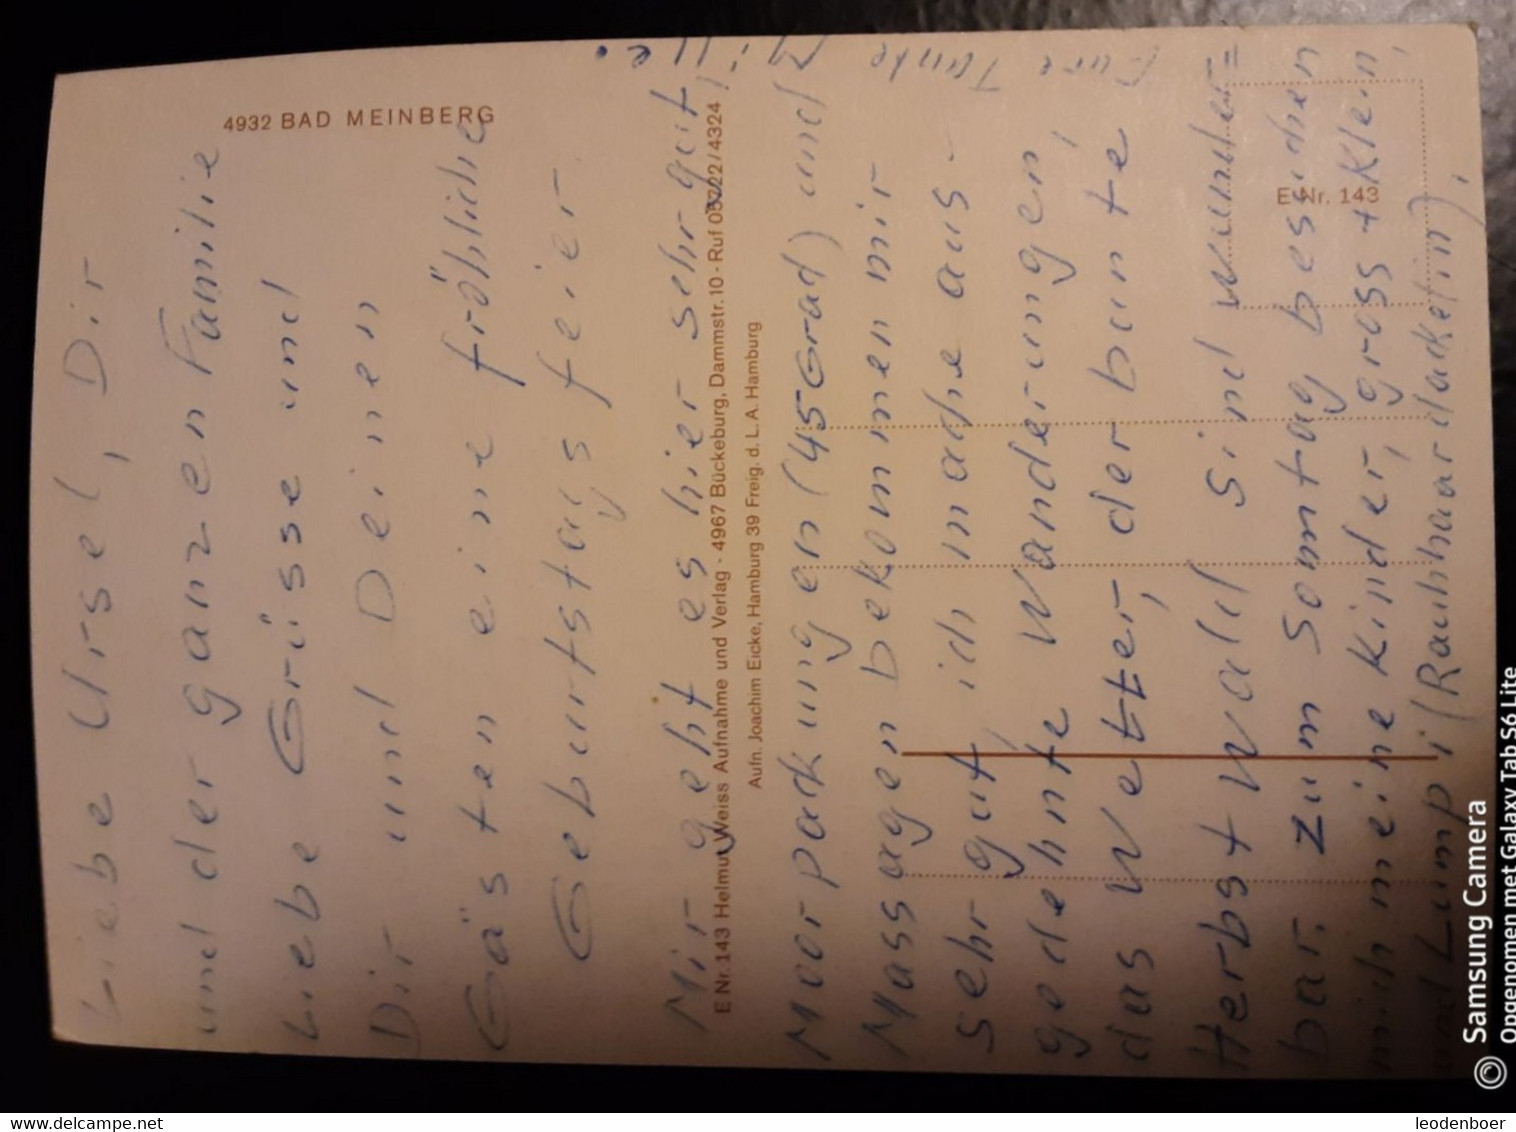 Liebe Ursel, Dir
und der ganzen Familie
Liebe Grüsse und
Dir und Deinen
Gästen eine fröhliche
Geburtstagsfeier
Mir geht es hier sehr gut,
Moorpackungen (45 Grad) und
Massagen bekommen mir
sehr gut, ich mache aus-
gedehnte Wanderungen,
das Wetter, der bunte
Herbstwald sind wunder=
bar, zum Sonntag besuchen
mich meine Kinder, gross + Klein,
und Lumpi (Rauhhaardackelin),
Eure Tante Mille.
4932 BAD MEINBERG
E Nr. 143
E Nr. 143 Helmut Weiss Aufnahme und Verlag · 4967 Bückeburg, Dammstr. 10 · Ruf 05722/4324
Aufn. Joachim Eicke, Hamburg 39 Freig. d. L. A. Hamburg
Samsung Camera
Opgenomen met Galaxy Tab S6 Lite
delcampe.net
leodenboer